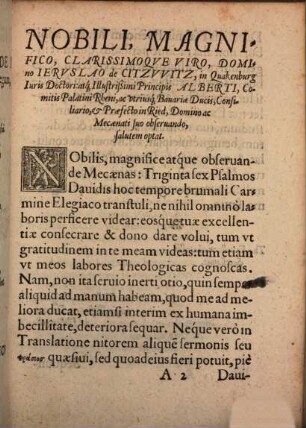 NOBILI, MAGNI-
FICO, CLARISSIMOQVE VIRO, DOMI-
no IERVSLAO de CITZVVITZ, in Quakenburg
Iuris Doctori: atq; Illustrissimi Principis ALBERTI, Co-
mitis Palatini Rheni, ac vtriusq; Bauariæ Ducis, Consi-
liario, & Præfecto in Ried, Domino ac
Mecænati suo obseruando,
salutem optat.
NObilis, magnifice atque obseruan-
de Mecænas: Triginta sex Psalmos
Dauidis hoc tempore brumali Car-
mine Elegiaco transtuli, ne nihil omnino la-
boris perficere videar: eosque tuæ excellen-
tiæ consecrare & dono dare volui, tum vt
gratitudinem in te meam videas: tum etiam
vt meos labores Theologicas cognoscas.
Nam, non ita seruio inerti otio, quin semper
aliquid ad manum habeam, quod me ad me-
liora ducat, etiamsi interim ex humana im-
becillitate, deteriora sequar. Neque verò in
Translatione nitorem aliquẽ sermonis seu
quæsiui, sed quoad eius fieri potuit, piè
A 2 Daui-